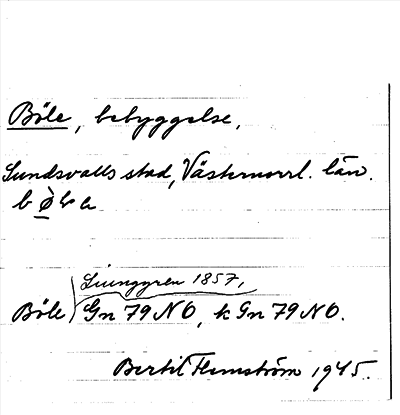 Böle, bebyggelse,
Sundsvalls stad, Västernorrl. län.
Ljunggren 1857,
Böle Gn 79 NO, k Gn 79 NO.
Bertil Flemström 1945.